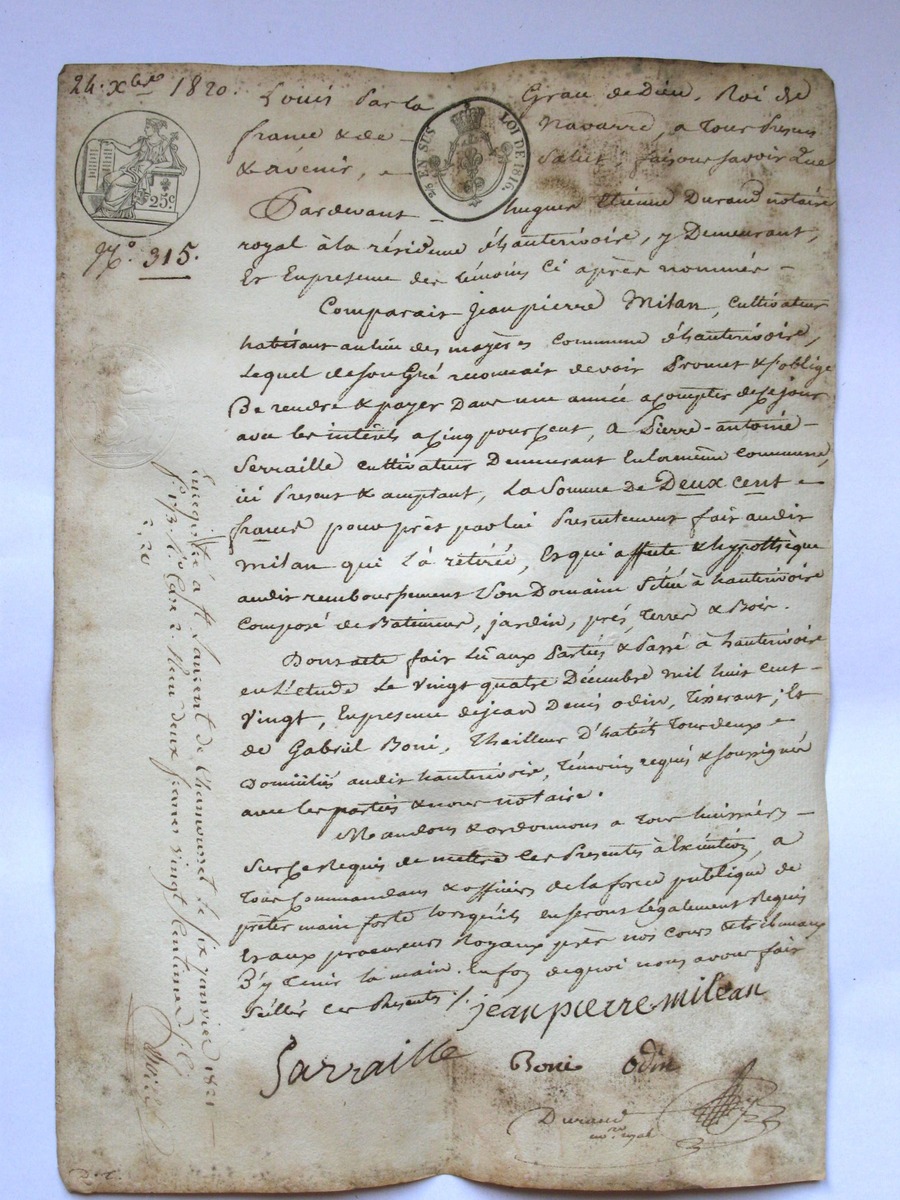 24. Xbre 1820.
Louis Par la Grace de Dieu, Roi de
france & de Navarre, a Tous Presens
& avenir, Salut, faisons savoir que
EN SUS LOI DE 1816.
25c.
No. 315.
Pardevant hugues Etienne Durand notaire
royal à la résidence d'hauterivoire, y Demeurant,
Et En presence des témoins Ci après nommés
Comparait jean pierre Milan, Cultivateur
habitant au lieu des mayeres Commune d'hauterivoire,
Lequel de son Gré reconnait devoir Promet & s'oblige
De rendre & payer Dans une année a Compter de ce jour
avec les intérêts a Cinq pour Cent, a Pierre-antoine
Serraille Cultivateur Demeurant En la même Commune,
ici Present & acceptant, La Somme De Deux Cent
francs pour prêt par lui Presentement fait audit
Milan qui L'a rétirée, Et qui affecte & hypothèque
audit remboursement Son Domaine Situé à hauterivoire
Composé de Batiments, jardin, prés, Terres & Bois.
Dont acte fait Lu aux Parties & Passé à hauterivoire
en L'étude Le Vingt quatre Décembre Mil huit Cent
Vingt, En presence de jean Denis odin, Tixerant, Et
de Gabriel Boni, Thailleur D'habits Tous deux
Domiciliés audit hauterivoire, Témoins requis & soussignés
avec les parties & nous notaire.
Mandons & ordonnons a Tous huissiers
Sur ce Requis de mettre Ces Presentes à Exécution, a
Tous Commandans & officiers de la force publique de
prêter main forte lorsqu'ils en seront légalement Requis
Et aux procureurs Royaux près nos Cours & tribunaux
D'y Tenir la main. En foy de quoi nous avons fait
Sceller Ces Presentes ./.
jean pierre milean
Sarraille
Boni odin
Durand
nore royal
Enregistré à St Laurent de Chamousset le six janvier 1821
fo 173 Ro Case 2 Reçu deux francs vingt Centimes
2,20